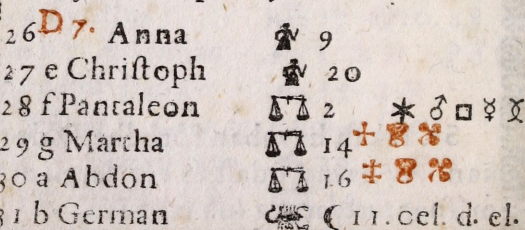 26 D 7. Anna ♍ 9
27 e Chriſtoph ♍ 20
28 f Pantaleon ♎ 2 ⚹ ♂ □ ☿
29 g Martha ♎ 14
30 a Abdon ♎ 16
31 b German ♏ ☾ 11. cel. d. el.